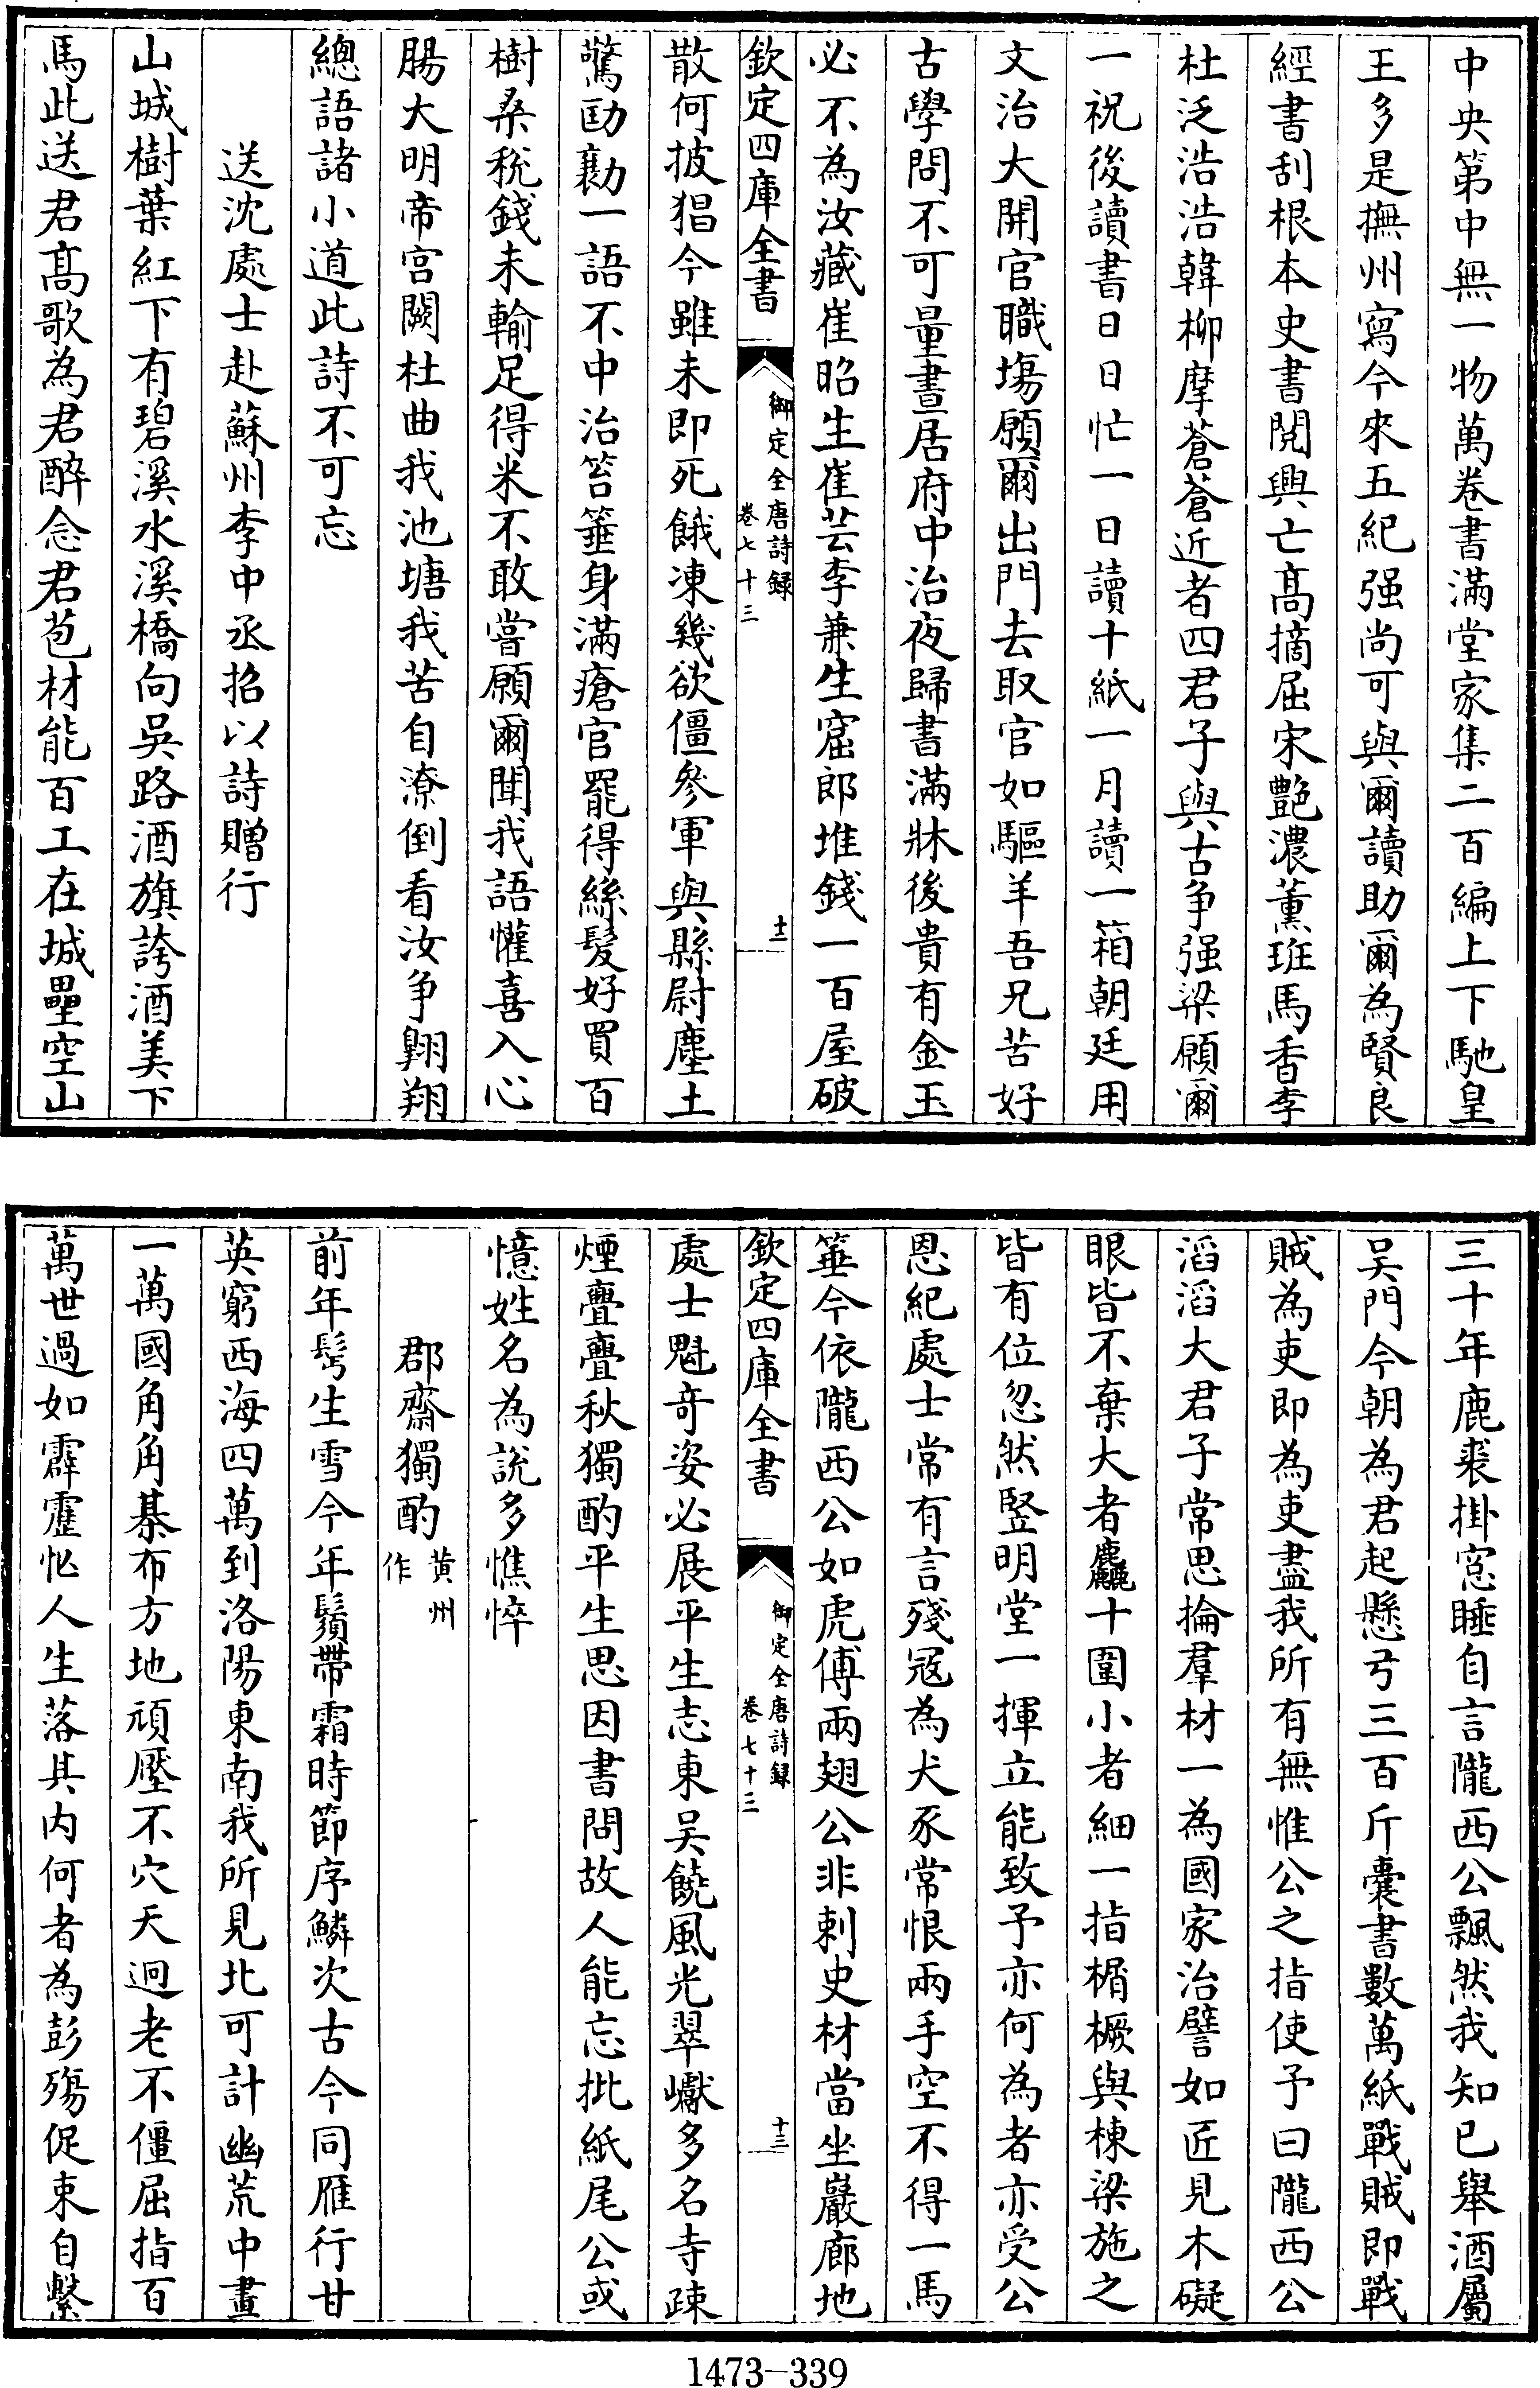 中央第中無一物萬卷書滿堂家集二百編上下馳皇
王多是撫州寫今來五紀强尚可與爾讀助爾為賢良
經書刮根本史書閱興亡髙摘屈宋艷濃薰班馬香李
杜泛浩浩韓柳摩蒼蒼近者四君子與古争强梁願爾
一祝後讀書日日忙一日讀十紙一月讀一箱朝廷用
文治大開官職塲願爾出門去取官如驅羊吾兄苦好
古學問不可量晝居府中治夜歸書滿牀後貴有金玉
必不為汝藏崔昭生崔芸李兼生窟郎堆錢一百屋破
欽定四庫全書
御定全唐詩録
卷七十三
十二
散何披猖今雖未即死餓凍幾欲僵參軍與縣尉塵土
驚劻勷一語不中治笞箠身滿瘡官罷得絲髮好買百
樹桑稅錢未輸足得米不敢嘗願爾聞我語懽喜入心
腸大明帝宫闕杜曲我池塘我苦自潦倒看汝争翺翔
總語諸小道此詩不可忘
送沈處士赴蘇州李中丞招以詩贈行
山城樹葉紅下有碧溪水溪橋向吳路酒旗誇酒美下
馬此送君髙歌為君醉念君苞材能百工在城壘空山
三十年鹿裘掛窓睡自言隴西公飄然我知已舉酒屬
吴門今朝為君起懸弓三百斤囊書數萬紙戰賊即戰
賊為吏即為吏盡我所有無惟公之指使予曰隴西公
滔滔大君子常思掄羣材一為國家治譬如匠見木礙
眼皆不棄大者麤十圍小者細一指楣橛與棟梁施之
皆有位忽然竪明堂一揮立能致予亦何為者亦受公
恩紀處士常有言殘冦為犬豕常恨兩手空不得一馬
箠今依隴西公如虎傅兩翅公非刺史材當坐巖廊地
欽定四庫全書
御定全唐詩録
卷七十三
十三
處士魁竒姿必展平生志東吴饒風光翠巘多名寺疎
煙亹亹秋獨酌平生思因書問故人能忘批紙尾公或
憶姓名為說多憔悴
郡齋獨酌黄州作
前年鬂生雪今年鬚帶霜時節序鱗次古今同雁行甘
英窮西海四萬到洛陽東南我所見北可計幽荒中畫
一萬國角角棊布方地頑壓不穴天迥老不僵屈指百
萬世過如霹靂忙人生落其内何者為彭殤促束自繫
1473-339